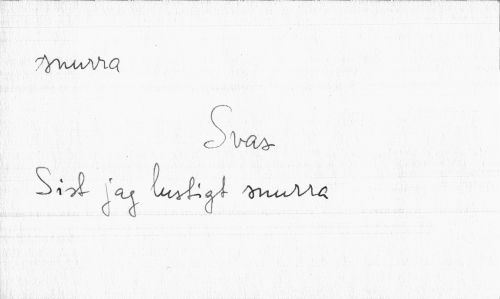 snurra
Svas
Sist jag lustigt snurra